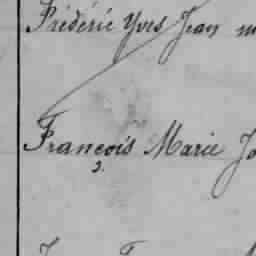 Frédéric Yves Jean
François Marie